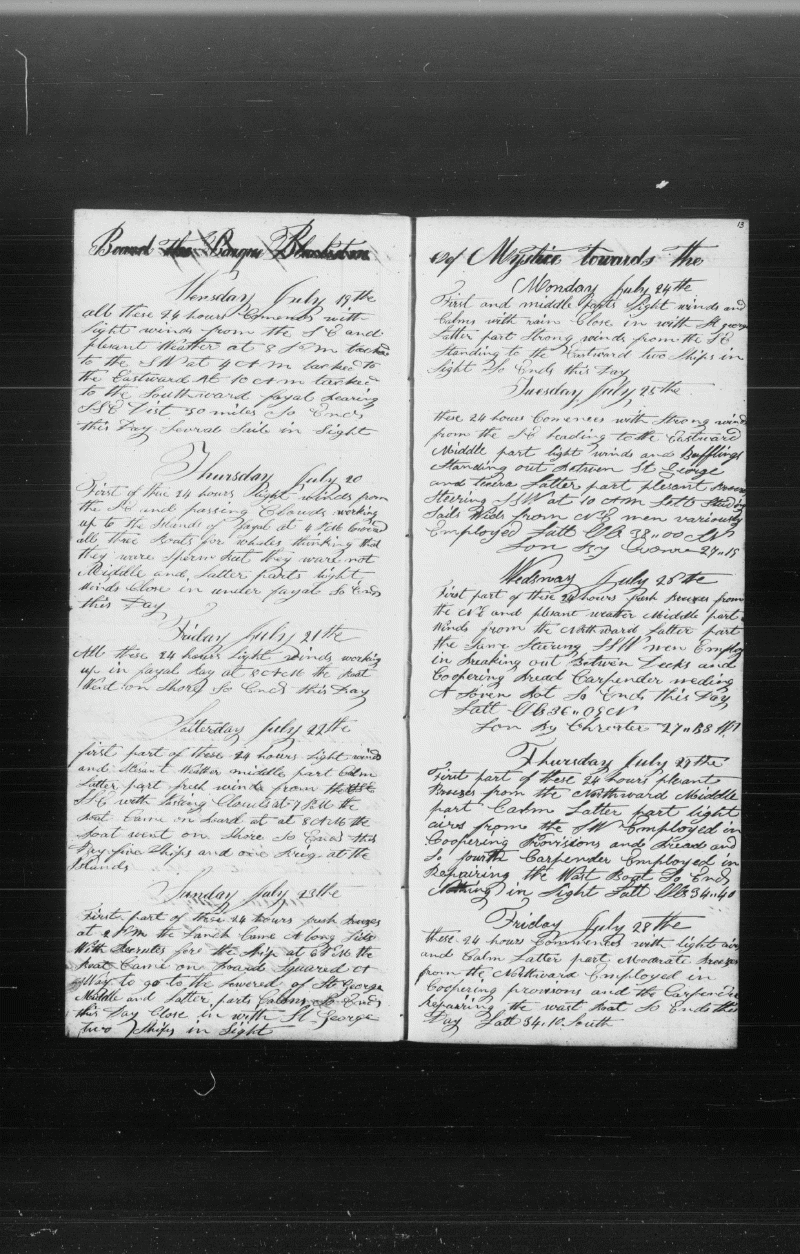 Board the Barque Blackstone
Wensday July 19the
all these 24 hours Comences with
light winds from the SE and
pleasant Weather at 8 P M tacked
to the SW at 4 A M tacked to
the Eastward At 10 A M tacked
to the Southward fayal bearing
SSE Dist 30 miles So Ends
this Day Several Sails in Sight
Thursday July 20
First of thse 24 hours light winds from
the SE and passing Clouds working
up to the Islands of Fayal at 4 P M lowered
all three Boats for whales thinking that
they ware Sperm but they ware not
Middle and Latter parts light
winds Close in under fayal So Ends
this Day
Friday July 21the
All these 24 hours light winds working
up in fayal bay at 8 A M the boat
Went on Shore So Ends this Day
Satterday July 22the
first part of these 24 hours light winds
and plesant Weather middle part Calm
Latter part fresh winds from the
SSE with passing Clouds at 7 P M the
boat Came on board at at 8 A M the
boat went on Shore So Ends this
Day five Ships and one Brig at the
Islands
Sunday July 23the
First part of these 24 hours fresh breezes
at 2 P M the Lanch Came A long Side
With Recrutes fore the Ship at 6 P M the
boat Came on board Squared A
Way to go to the Leward of St George
Middle and Latter parts Calms So Ends
this Day Close in with St George
two Ships in Sight
13
of Mystic towards the
Monday July 24the
First and middle parts light winds and
Calms with rain Close in with St george
Latter part Strong winds from the SE
Standing to the Eastward two Ships in
Sight So Ends this Day
Tuesday July 25the
these 24 hours Comences with Strong winds
from the SE heading to the Eastward
Middle part light winds and Baffling
Standing out between St George
and Latter part plesant breezes
Steering SSW at 10 A M Sett Studing
Sails Winds from NE men variously
Employed Latt Ob 38"00 N
Lon By 27"15
Wedsnay July 26the
First part of these 24 hours fresh breezes from
the NE and plesant weather Middle part
Winds from the Northward Latter part
the Same Steering SSW men Employ
in breaking out Between Decks and
Coopering Bread Carpender
A boat So Ends this Day
Latt Ob 36"09 N
Lon By Chronter 27"88 W
Thursday July 27the
First part of these 24 hours plesant
Breezes from the Northward Maiddle
part Calm Latter part light
aires from the SW Employed in
Coopering Provisions and Bread and
So fourth Carpender Employed in
Repairing the Wast Boat So Ends
Nothing in Sight Latt Ob 34"40
Friday July 28the
these 24 hours Commences with light airs
and Calm Latter part Moderate Breezes
from the Northward Employed in
Coopering provisions and the Carpender
repairing the wast boat So Ends this
Day Latt 34"10 South